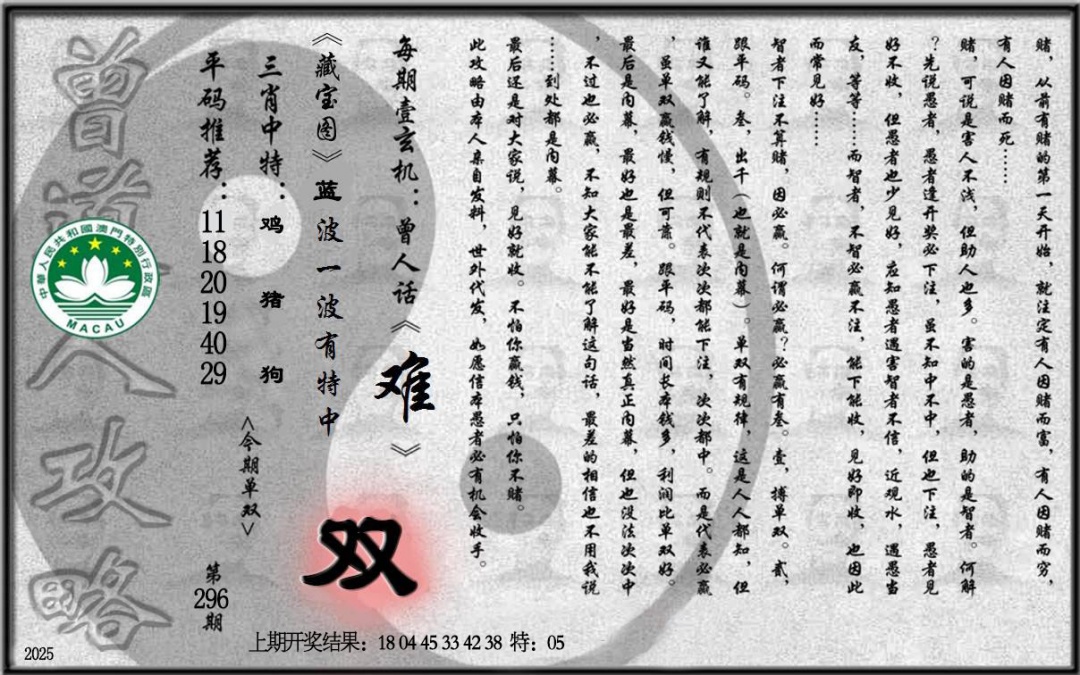 赌，从前有赌的第一天开始，就注定有人因赌而富，有人因赌而穷，
有人因赌而死……
赌，可说是害人不浅，但助人也多。害的是愚者，助的是智者。何解
？先说愚者，愚者逢开奖必下注，虽不知中不中，但也下注，愚者见
好不收，但愚者也少见好，应知愚者遇害智者不信，近观水，遇愚当
友，等等……而智者，不智必赢不注，能下能收，见好即收，也因此
而常见好……
智者下注不算赌，因必赢。何谓必赢？必赢有叁。壹，搏单双。贰，
跟平码。叁，出千（也就是内幕）。单双有规律，这是人人都知，但
谁又能了解，有规则不代表次次都能下注，次次都中。而是代表必赢
，虽单双赢钱慢，但可靠。跟平码，时间长本钱多，利润比单双好。
最后是内幕，最好也是最差，最好是当然真正内幕，但也没法次次中
，不过也必赢，不知大家能不能了解这句话，最差的相信也不用我说
……到处都是内幕。
最后还是对大家说，见好就收。不怕你赢钱，只怕你不赌。
此攻略由本人亲自发料，世外代发，如愿信本愚者必有机会收手。
每期壹玄机：曾人话《难》
《藏宝图》蓝波一波有特中
双
三肖中特：鸡 猪 狗
<今期单双>
平码推荐：11 18 20 19 40 29
第296期
曾道人攻略
中華人民共和國澳門特別行政區
MACAU
上期开奖结果：18 04 45 33 42 38 特：05
2025